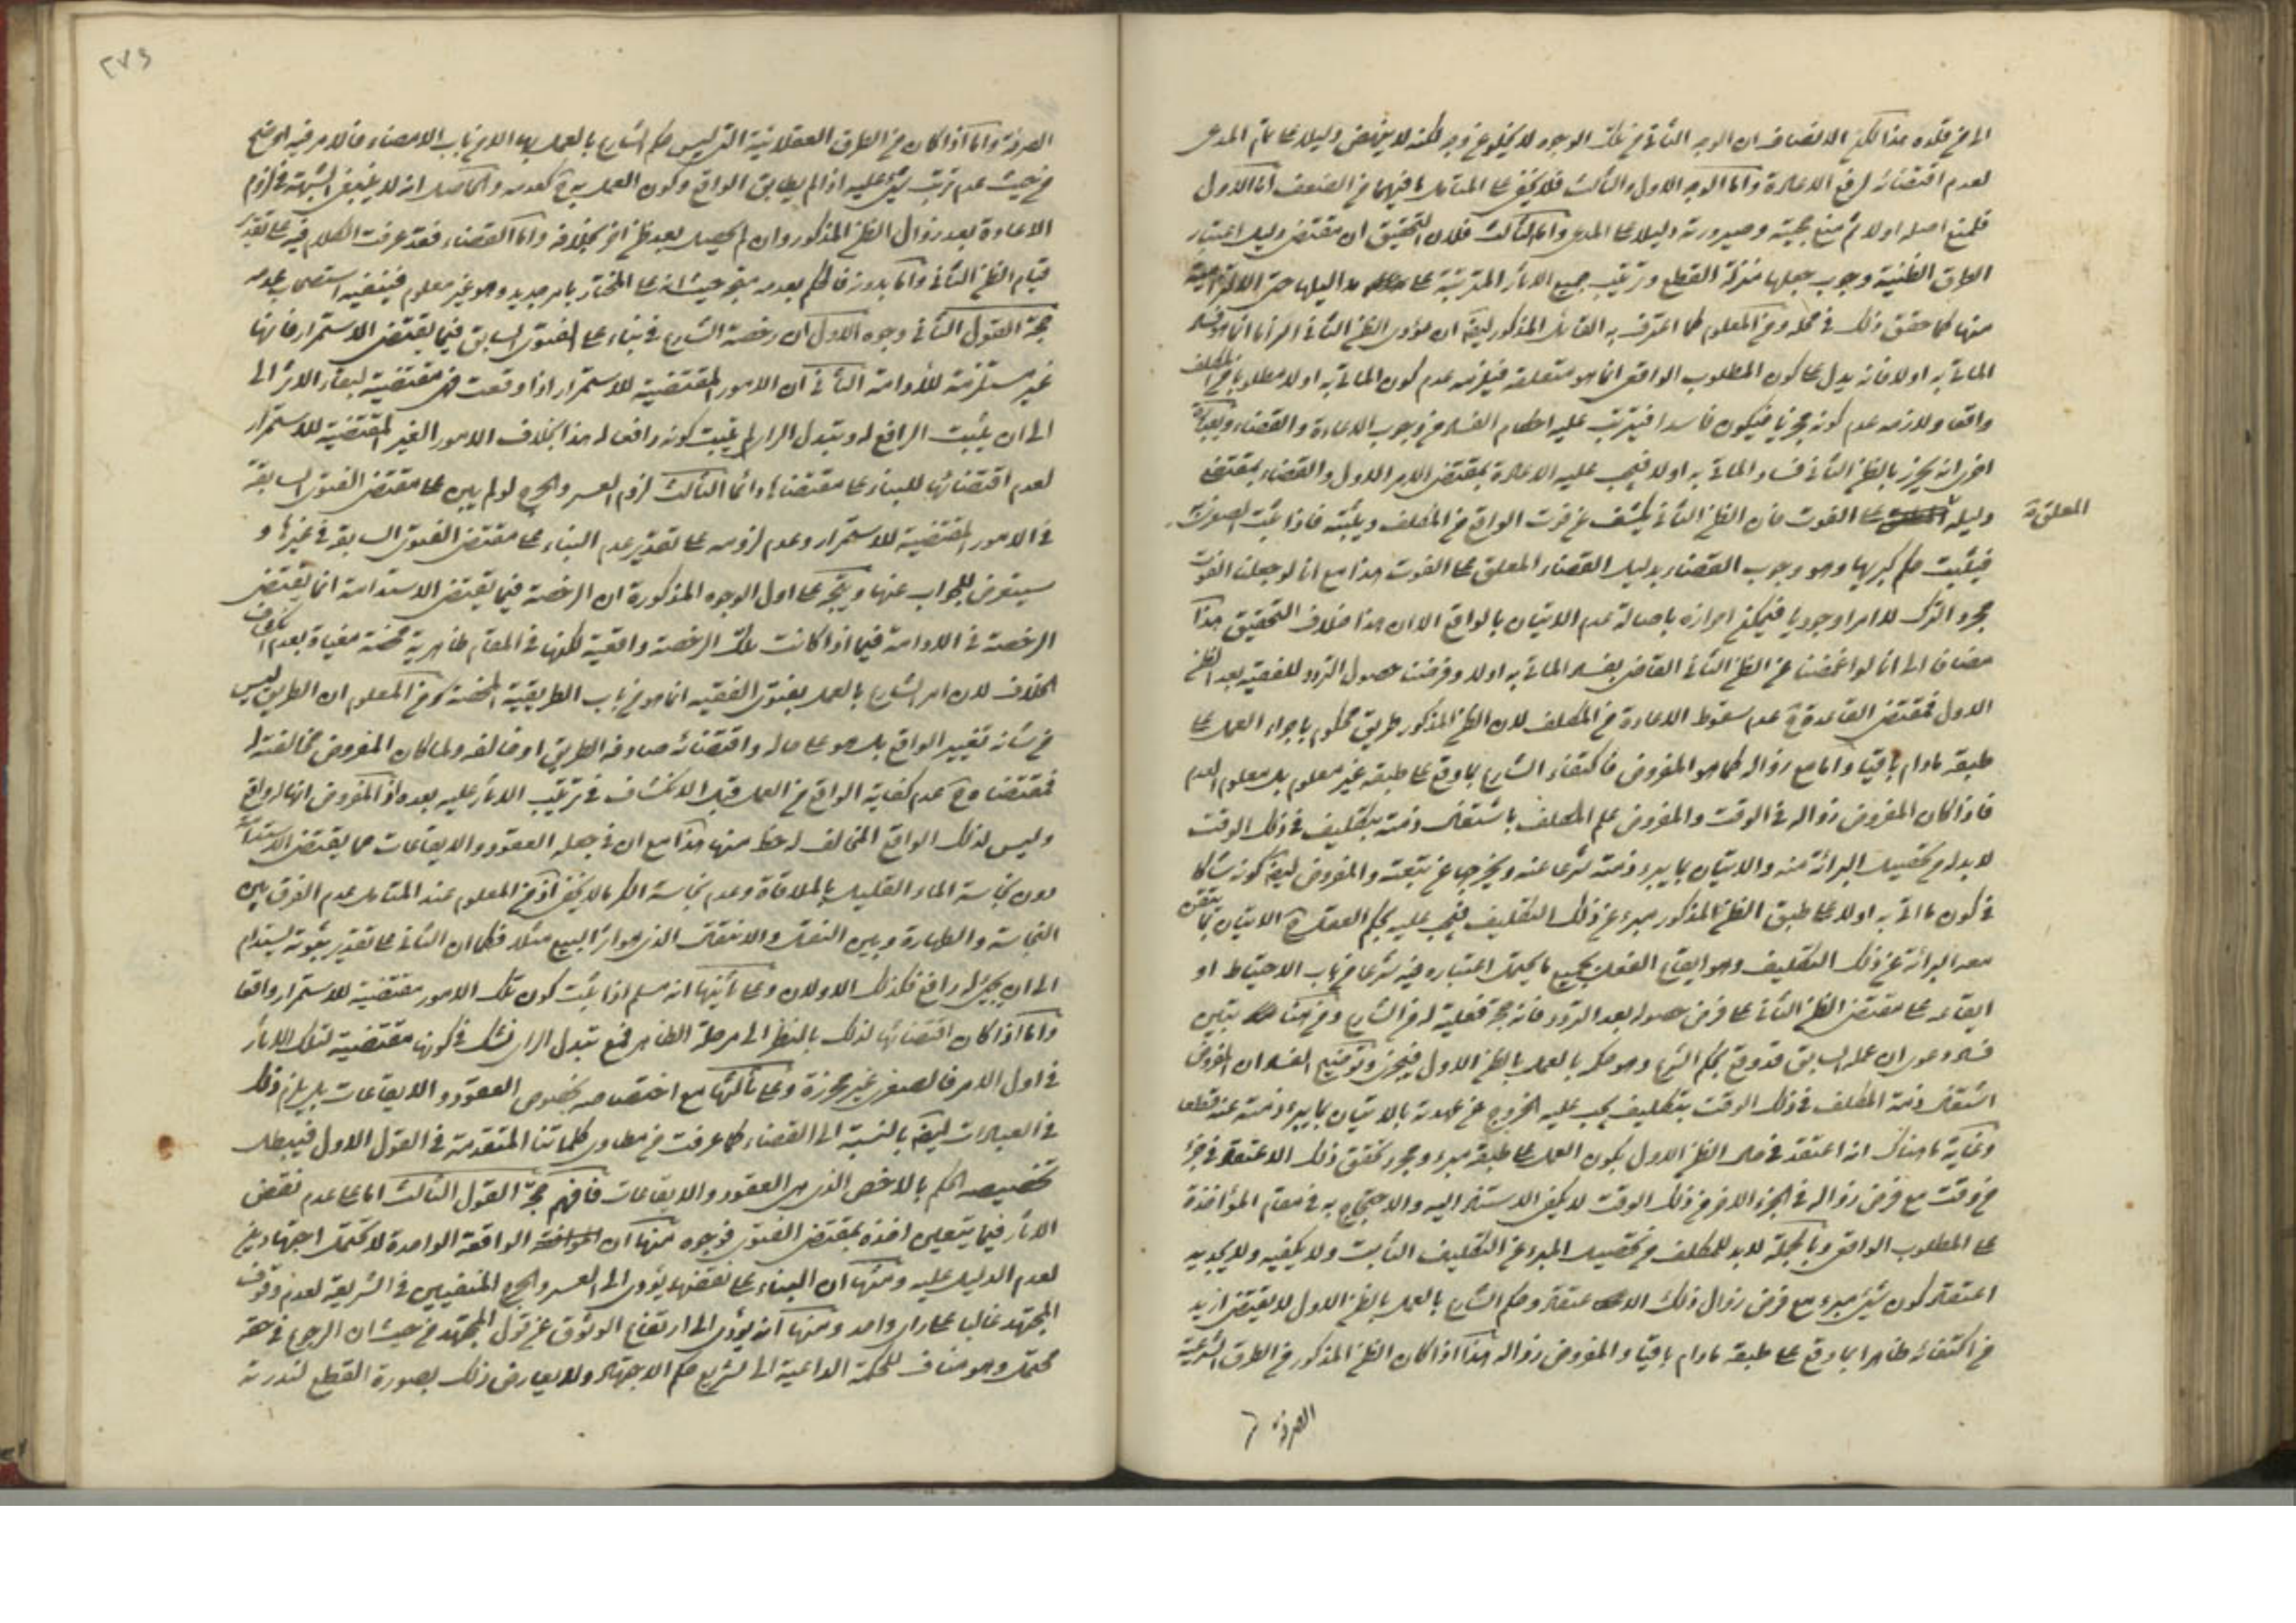 الى من قلده هذا لكن الانصاف ان الوجه الثاني من تلك الوجوه لا يخلو عن وجه لكنه لا ينهض دليلا على تمام المدعى
لعدم اقتضائه لرفع الاعادة واما الوجه الاول والثالث فلا يخفى على المتأمل ما فيهما من الضعف اما الاول
فلمنع اصله اولا ثم منع حجيته وصيرورته دليلا على المدعى واما الثالث فلان التحقيق ان مقتضى دليل اعتبار
الطرق الظنية وجوب جعلها منزلة القطع وترتيب جميع الاثار المترتبة على مداليلها حتى الالتزامية
منها كما حقق ذلك في محله ومن المعلوم كما اعترف به القائل المذكور ايضا ان مؤدى الظن الثاني في الحال انما هو فساد
الماتي به اولا فانه يدل على كون المطلوب الواقعي انما هو متعلقه فيلزمه عدم كون الماتي به اولا مطلوبا من المكلف
واقعا ولازمه عدم كونه مجزيا فيكون فاسدا فيترتب عليه احكام الفساد من وجوب الاعادة والقضاء وبعبارة
اخرى انه يحرز بالظن الثاني فساد الماتي به اولا فيجب عليه الاعادة بمقتضى الامر الاول والقضاء بمقتضى
دليله المعلق على الفوت فان الظن الثاني يكشف عن فوت الواقع من المكلف ويثبته فاذا ثبت الفوت
فيثبت حكم كبريها وهو وجوب القضاء بدليل القضاء المعلق على الفوت هذا مع انا لو جعلنا الفوت
مجرد الترك لا امرا وجوديا فيمكن احرازه باصالة عدم الاتيان بالواقع الا ان هذا خلاف التحقيق هذا
مضافا الى انا لو اغمضنا عن الظن الثاني القاضي بفساد الماتي به اولا وفرضنا حصول التردد للفقيه بعد الظن
الاول فمقتضى القاعدة ح عدم سقوط الاعادة من المكلف لان الظن المذكور طريق محكوم باجراء العمل على
طبقه ما دام باقيا واما مع زواله كما هو المفروض فاكتفاء الشارع بما وقع على طبقه غير معلوم بل معلوم العدم
فاذا كان المفروض زواله في الوقت والمفروض علم المكلف باشتغال ذمته بتكليف في ذلك الوقت
لا بد له من تحصيل البرائة منه والاتيان بما يبرء ذمته شرعا عنه ويخرجها عن تبعته والمفروض ايضا كونه شاكا
في كون ما اتى به اولا على طبق الظن المذكور مبرء عن ذلك التكليف فيجب عليه بحكم العقل ح الاتيان بما يتيقن
معه البرائة عن ذلك التكليف وهو ايقاع الفعل بجميع ما يحتمل اعتباره فيه شرعا من باب الاحتياط او
ايقاعه على مقتضى الظن الثاني على فرض حصوله بعد التردد فانه حجة فعلية له من الشارع ومن هنا تبين
فساد دعوى ان عمله السابق قد وقع بحكم الشرع وهو حكمه بالعمل بالظن الاول فيجزى وتوضيح الفساد ان المفروض
اشتغال ذمة المكلف في ذلك الوقت بتكليف يجب عليه الخروج عن عهدته بالاتيان بما يبرء ذمته عنه قطعا
وغاية ما هناك انه اعتقد في حال الظن الاول بكون العمل على طبقه مبرء ومجرد تحقق ذلك الاعتقاد في جزء
من وقت مع فرض زواله في الجزء الاخر من ذلك الوقت لا يكفي الاستناد اليه والاحتجاج به في مقام المؤاخذة
على المطلوب الواقعي وبالجملة لا بد للمكلف من تحصيل المبرء عن التكليف الثابت ولا يكفيه ولا يجديه
اعتقاد كون شئ مبرء مع فرض زوال ذلك الاعتقاد وحكم الشارع بالعمل بالظن الاول لا يقتضى ازيد
من اكتفائه ظاهرا بما وقع على طبقه ما دام باقيا والمفروض زواله هذا اذا كان الظن المذكور من الطرق الشرعية
المعلق
الصرفة
٢٧٤
الصرفة واما اذا كان من الطرق العقلائية التي ليس حكم الشارع بالعمل بها الا من باب الامضاء فالامر فيه اوضح
من حيث عدم ترتب شئ عليه اذا لم يطابق الواقع وكون العمل به ح كعدمه والحاصل انه لا ينبغي الشبهة في لزوم
الاعادة بعد زوال الظن المذكور وان لم يحصل بعد ظن اخر بخلافه واما القضاء فقد عرفت الكلام فيه على تقدير
قيام الظن الثاني واما بدونه فالحكم بعدمه متجه حيث انه على المختار بامر جديد وهو غير معلوم فينفيه استصحاب عدمه
حجة القول الثاني وجوه الاول ان رخصة الشارع في بناء على الفتوى السابق فيما يقتضى الاستمرار فانها
غير مستلزمة للادامة الثاني ان الامور المقتضية للاستمرار اذا وقعت فهي مقتضية لبقاء الاثر الى
الى ان يثبت الرافع له وبتبدل الراى لم يثبت كونه رافعا له هذا بخلاف الامور الغير المقتضية للاستمرار
لعدم اقتضائها للبناء على مقتضاها دائما الثالث لزوم العسر والحرج لو لم يبن على مقتضى الفتوى السابقة
في الامور المقتضية للاستمرار وعدم لزومه على تقدير عدم البناء على مقتضى الفتوى السابقة في غيرها و
سيتعرض للجواب عنها ويتجه على اول الوجوه المذكورة ان الرخصة فيما يقتضى الاستدامة انما يقتضى
الرخصة في الادامة فيما اذا كانت تلك الرخصة واقعية لكنها في المقام ظاهرية محضة مغياة بعدم انكشاف
الخلاف لان امر الشارع بالعمل بفتوى الفقيه انما هو من باب الطريقية المحضة ومن المعلوم ان الطريق ليس
من شانه تغيير الواقع بل هو على حاله واقتضائه صادفه الطريق او خالفه ولما كان المفروض مخالفته له
فمقتضاه ح عدم كفاية الواقع من العمل قبل الانكشاف في ترتيب الاثار عليه بعده اذ المفروض انها لواقع
وليس لذلك الواقع المخالف له حظ منها هذا مع ان في جعله العقود والايقاعات مما يقتضى الاستدامة
دون نجاسة الماء القليل بالملاقاة وعدم نجاسة الكر ما لا يخفى اذ من المعلوم عند المتامل عدم الفرق بين
النجاسة والطهارة وبين النقل والانتقال الذى هو اثر البيع مثلا فكما ان الثاني على تقدير ثبوته يستدام
الى ان يجئ له رافع فكذلك الاولان وعلى ثانيها انه مسلم اذا ثبت كون تلك الامور مقتضية للاستمرار واقعا
واما اذا كان اقتضائها لذلك بالنظر الى مرحلة الظاهر فمع تبدل الراى نشك في كونها مقتضية لتلك الاثار
في اول الامر فالصغرى غير محرزة وعلى ثالثها مع اختصاصه بخصوص العقود والايقاعات بل يلزم ذلك
في العبادات ايضا بالنسبة الى القضاء كما عرفت من مطاوى كلماتنا المتقدمة في القول الاول فيبطل
تخصيصه الحكم بالاخص الذى هى العقود والايقاعات فافهم حجة القول الثالث اما على عدم نقض
الاثار فيما يتعين اخذه بمقتضى الفتوى فوجوه منها ان الواقعة الواحدة لا تحتمل اجتهادين
لعدم الدليل عليه ومنها ان البناء على نقضها يؤدى الى العسر والحرج المنفيين في الشريعة لعدم وقوف
المجتهد غالبا على راى واحد ومنها انه يؤدى الى ارتفاع الوثوق عن قول المجتهد من حيث ان الرجوع في حقه
محتمل وهو مناف للحكمة الداعية الى تشريع حكم الاجتهاد ولا يعارض ذلك بصورة القطع لندرته